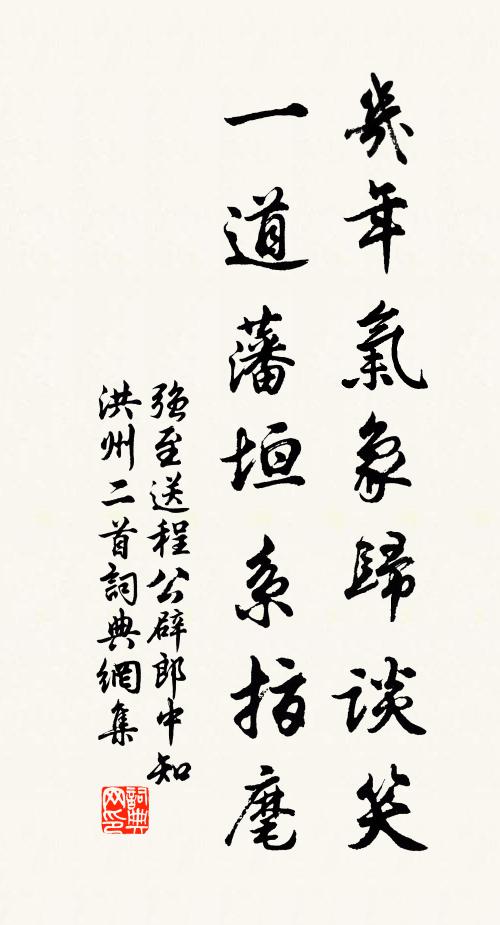 幾年氣象歸談笑
一道藩垣系指麾
強至送程公辟郎中知
洪州二首詞典網集
詞典
网印